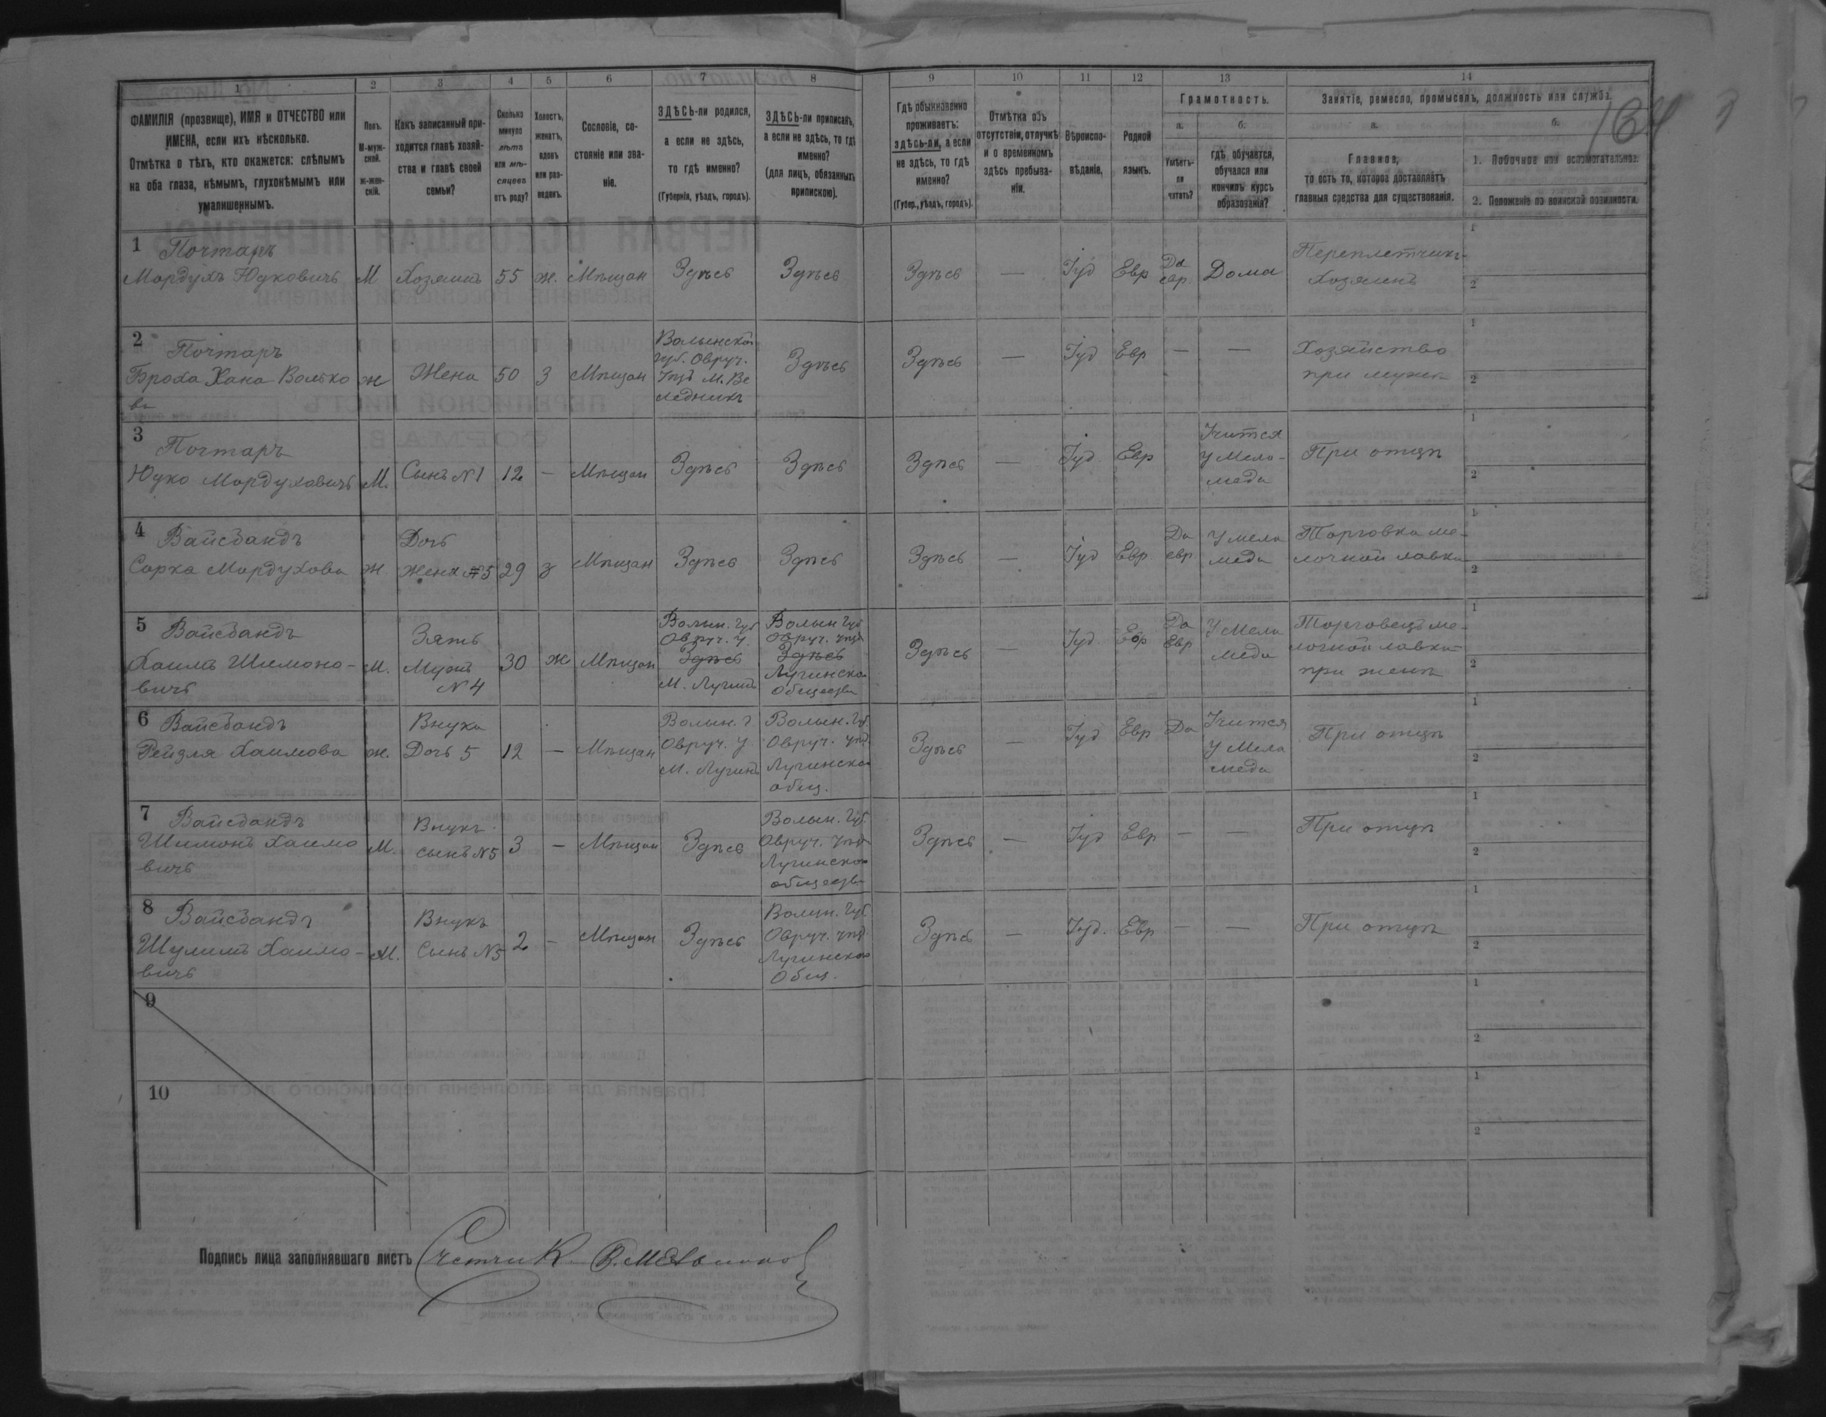 1 2 3 4 5 6 7 8 9 10 11 12 13 14
ФАМИЛІЯ (прозвище), ИМЯ и ОТЧЕСТВО или
ИМЕНА, если ихъ нѣсколько.
Отмѣтка о тѣхъ, кто окажется: слѣпымъ
на оба глаза, нѣмымъ, глухонѣмымъ или
умалишеннымъ.
Полъ.
М-муж-
ской.
Ж-жен-
скій.
Какъ записанный при-
ходится главѣ хозяй-
ства и главѣ своей
семьи?
Сколько
минуло
лѣтъ
или мѣ-
сяцевъ
отъ роду?
Холостъ,
женатъ,
вдовъ
или раз-
веденъ.
Сословіе, со-
стояніе или зва-
ніе.
ЗДѢСЬ-ли родился,
а если не здѣсь,
то гдѣ именно?
(Губернія, уѣздъ, городъ).
ЗДѢСЬ-ли приписанъ,
а если не здѣсь, то гдѣ
именно?
(для лицъ, обязанныхъ
припискою).
Гдѣ обыкновенно
проживаетъ:
здѣсь-ли, а если
не здѣсь, то гдѣ
именно?
(Губер., уѣздъ, городъ).
Отмѣтка объ
отсутствіи, отлучкѣ
и о временномъ
здѣсь пребыва-
ніи.
Вѣроиспо-
вѣданіе.
Родной
языкъ.
Грамотность.
а.
Умѣетъ-
ли
читать?
б.
гдѣ, обучается,
обучался или
кончилъ курсъ
образованія?
Занятіе, ремесло, промыселъ, должность или служба.
а.
Главное,
то есть то, которое доставляетъ
главныя средства для существованія.
б.
1. Побочное или вспомогательное.
2. Положеніе по воинской повинности.
1 Почтаръ
Мордухъ Юковичъ М Хозяинъ 55 ж. Мѣщан Здѣсь Здѣсь Здѣсь — Іуд Евр Да евр. Дома Переплетчикъ
Хозяинъ
2 Почтаръ
Броха Хана Волько
ва ж Жена 50 З Мѣщан
Волынской
Губ. Овруч.
Уѣзд М. Ве
ледники
Здѣсь Здѣсь — Іуд Евр — —
Хозяйство
при мужѣ
3 Почтаръ
Юдко Мордуховичъ М. Сынъ №1 12 — Мѣщан Здѣсь Здѣсь Здѣсь — Іуд Евр
Учится
у Мела-
меда
При отцѣ
4 Вайсбандъ
Сорка Мордухова ж
Дочь
Жена №5 29 з Мѣщан Здѣсь Здѣсь Здѣсь — Іуд Евр
Да
евр
У мела
меда
Торговка ме-
лочной лавки
5 Вайсбандъ
Хаимъ Шимоно-
вичъ М.
Зять
Мужъ
№4
30 ж Мѣщан
Волын. Губ
Овруч. у.
Здѣсь
М. Лугинъ
Волын Губ
Овруч. уѣзд
Здѣсь
Лугинское
общество
Здѣсь — Іуд Евр
Да
Евр
У Мела
меда
Торговецъ ме-
лочной лавки
при женѣ
6 Вайсбандъ
Рейзля Хаимова ж.
Внука
Дочь 5 12 — Мѣщан
Волын. г
Овруч. у
М. Лугинъ
Волын. Губ
Овруч. уѣзд
Лугинское
общ.
Здѣсь — Іуд Евр Да
Учится
у Мела
меда
При отцѣ
7 Вайсбандъ
Шимонъ Хаимо
вичъ М.
Внукъ
сынъ №5 3 — Мѣщан Здѣсь
Волын. Губ
Овруч. уѣзд
Лугинское
общество
Здѣсь — Іуд Евр — —
При отцѣ
8 Вайсбандъ
Шулимъ Хаимо-
вичъ М.
Внукъ
Сынъ №5 2 — Мѣщан Здѣсь
Волын. Губ
Овруч. уѣзд
Лугинское
Общ.
Здѣсь — Іуд. Евр — —
При отцѣ
9
10
Подпись лица заполнявшаго листъ Счетчикъ